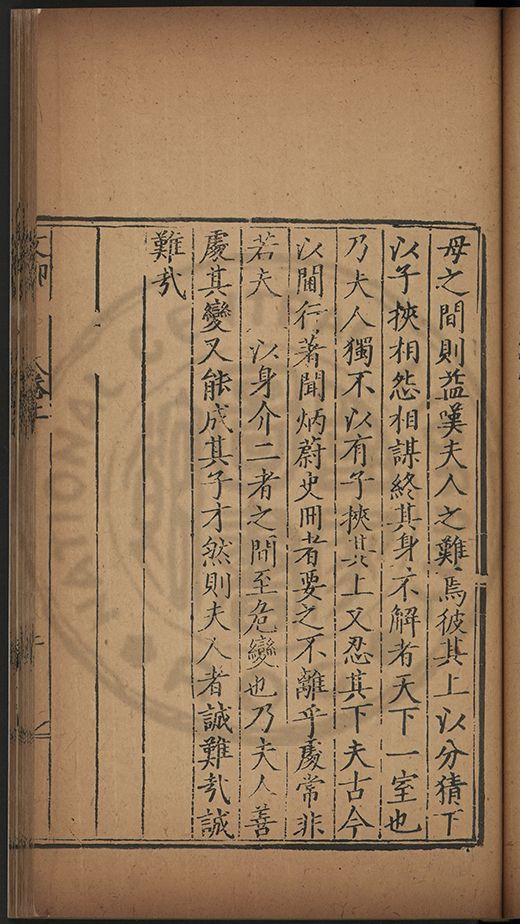 母之間則益嘆夫人之難焉彼其上以分猜下
以子挾相怨相謀終其身不解者天下一室也
乃夫人獨不以有子挾其上又忍其下夫古今
以閫行著聞炳蔚史冊者要之不離乎處常非
若夫 以身介二者之間至危變也乃夫人善
處其變又能成其子才然則夫人者誠難哉誠
難哉